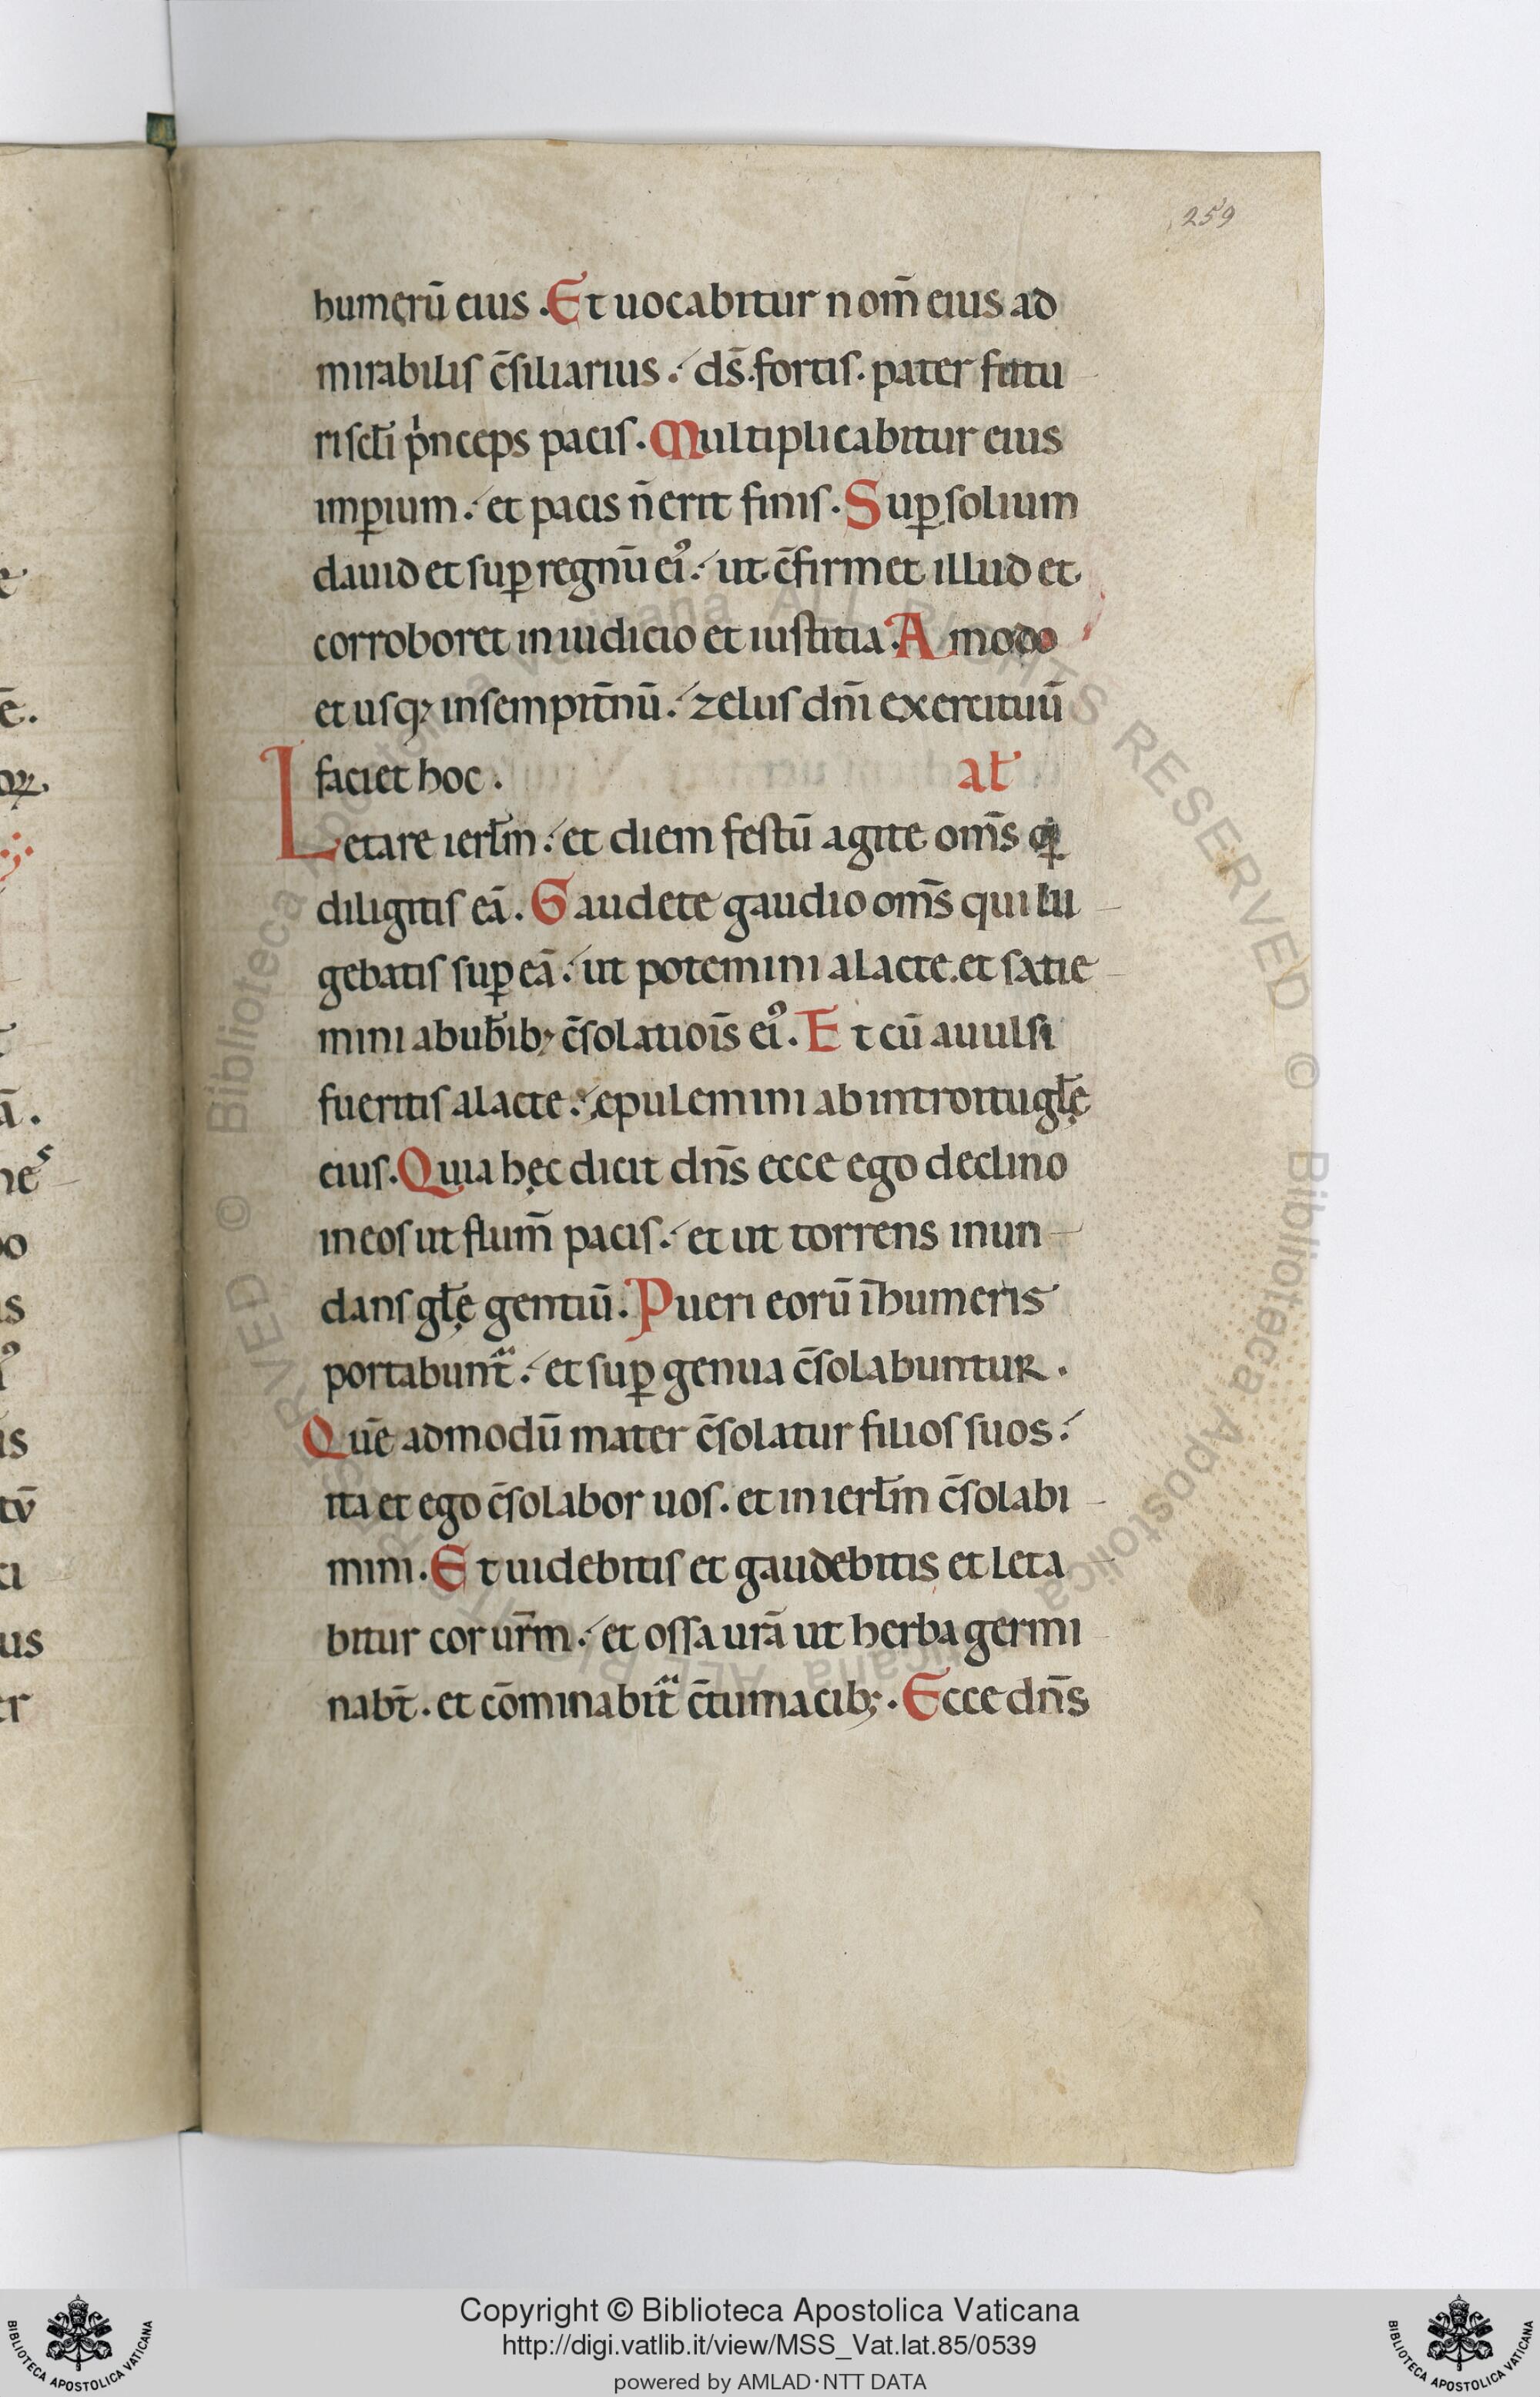 259
humerū eius. Et uocabitur nom̄ eius ad
mirabilis c̄siliarius. ds̄. fortis. pater futu
ri sct̄i pͥnceps pacis. Multiplicabitur eius
imꝑium. et pacis n̄ erit finis. Suꝑ solium
dauid et suꝑ regnū eiꝰ. ut c̄firmet illud et
corroboret in iudicio et iustitia. A modo
et usq; in sempit̄nū. zelus dn̄i exercituū
faciet hoc. at̄
Letare ierl̄m. et diem festū agite om̄s q̄
diligitis eā. Gaudete gaudio om̄s qui lu
gebatis suꝑ eā. ut potemini a lacte. et satie
mini ab ub̄ib; c̄solatiōis eiꝰ. Et cū auulsi
fueritis a lacte. epulemini ab introitu gl̄ę
eius. Quia hęc dicit dn̄s ecce ego declino
in eos ut flum̄ pacis. et ut torrens inun
dans gl̄ę gentiū. Pueri eorū ī humeris
portabunt᷑. et suꝑ genua c̄solabuntur.
Quē admodū mater c̄solatur filios suos.
ita et ego c̄solabor uos. et in ierl̄m c̄solabi
mini. Et uidebitis et gaudebitis et leta
bitur cor ur̄m. et ossa urā ut herba germi
nabt̄. et cōminabit᷑ c̄tumacib;. Ecce dn̄s
Copyright © Biblioteca Apostolica Vaticana
http://digi.vatlib.it/view/MSS_Vat.lat.85/0539
powered by AMLAD·NTT DATA
BIBLIOTECA APOSTOLICA VATICANA
BIBLIOTECA APOSTOLICA VATICANA